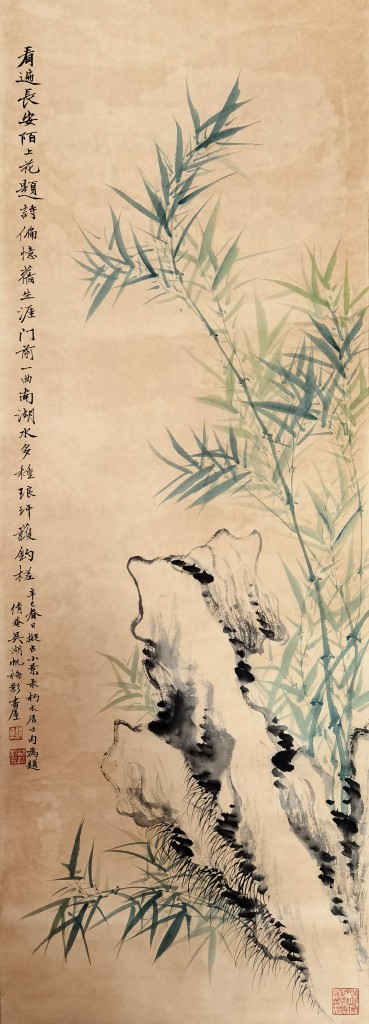 看遍長安陌上花題詩偏憶舊生涯门前一曲南湖水多種琅玕護釣槎
辛巳春日擬古小景居士為題
倩庵吳湖帆梅影書屋